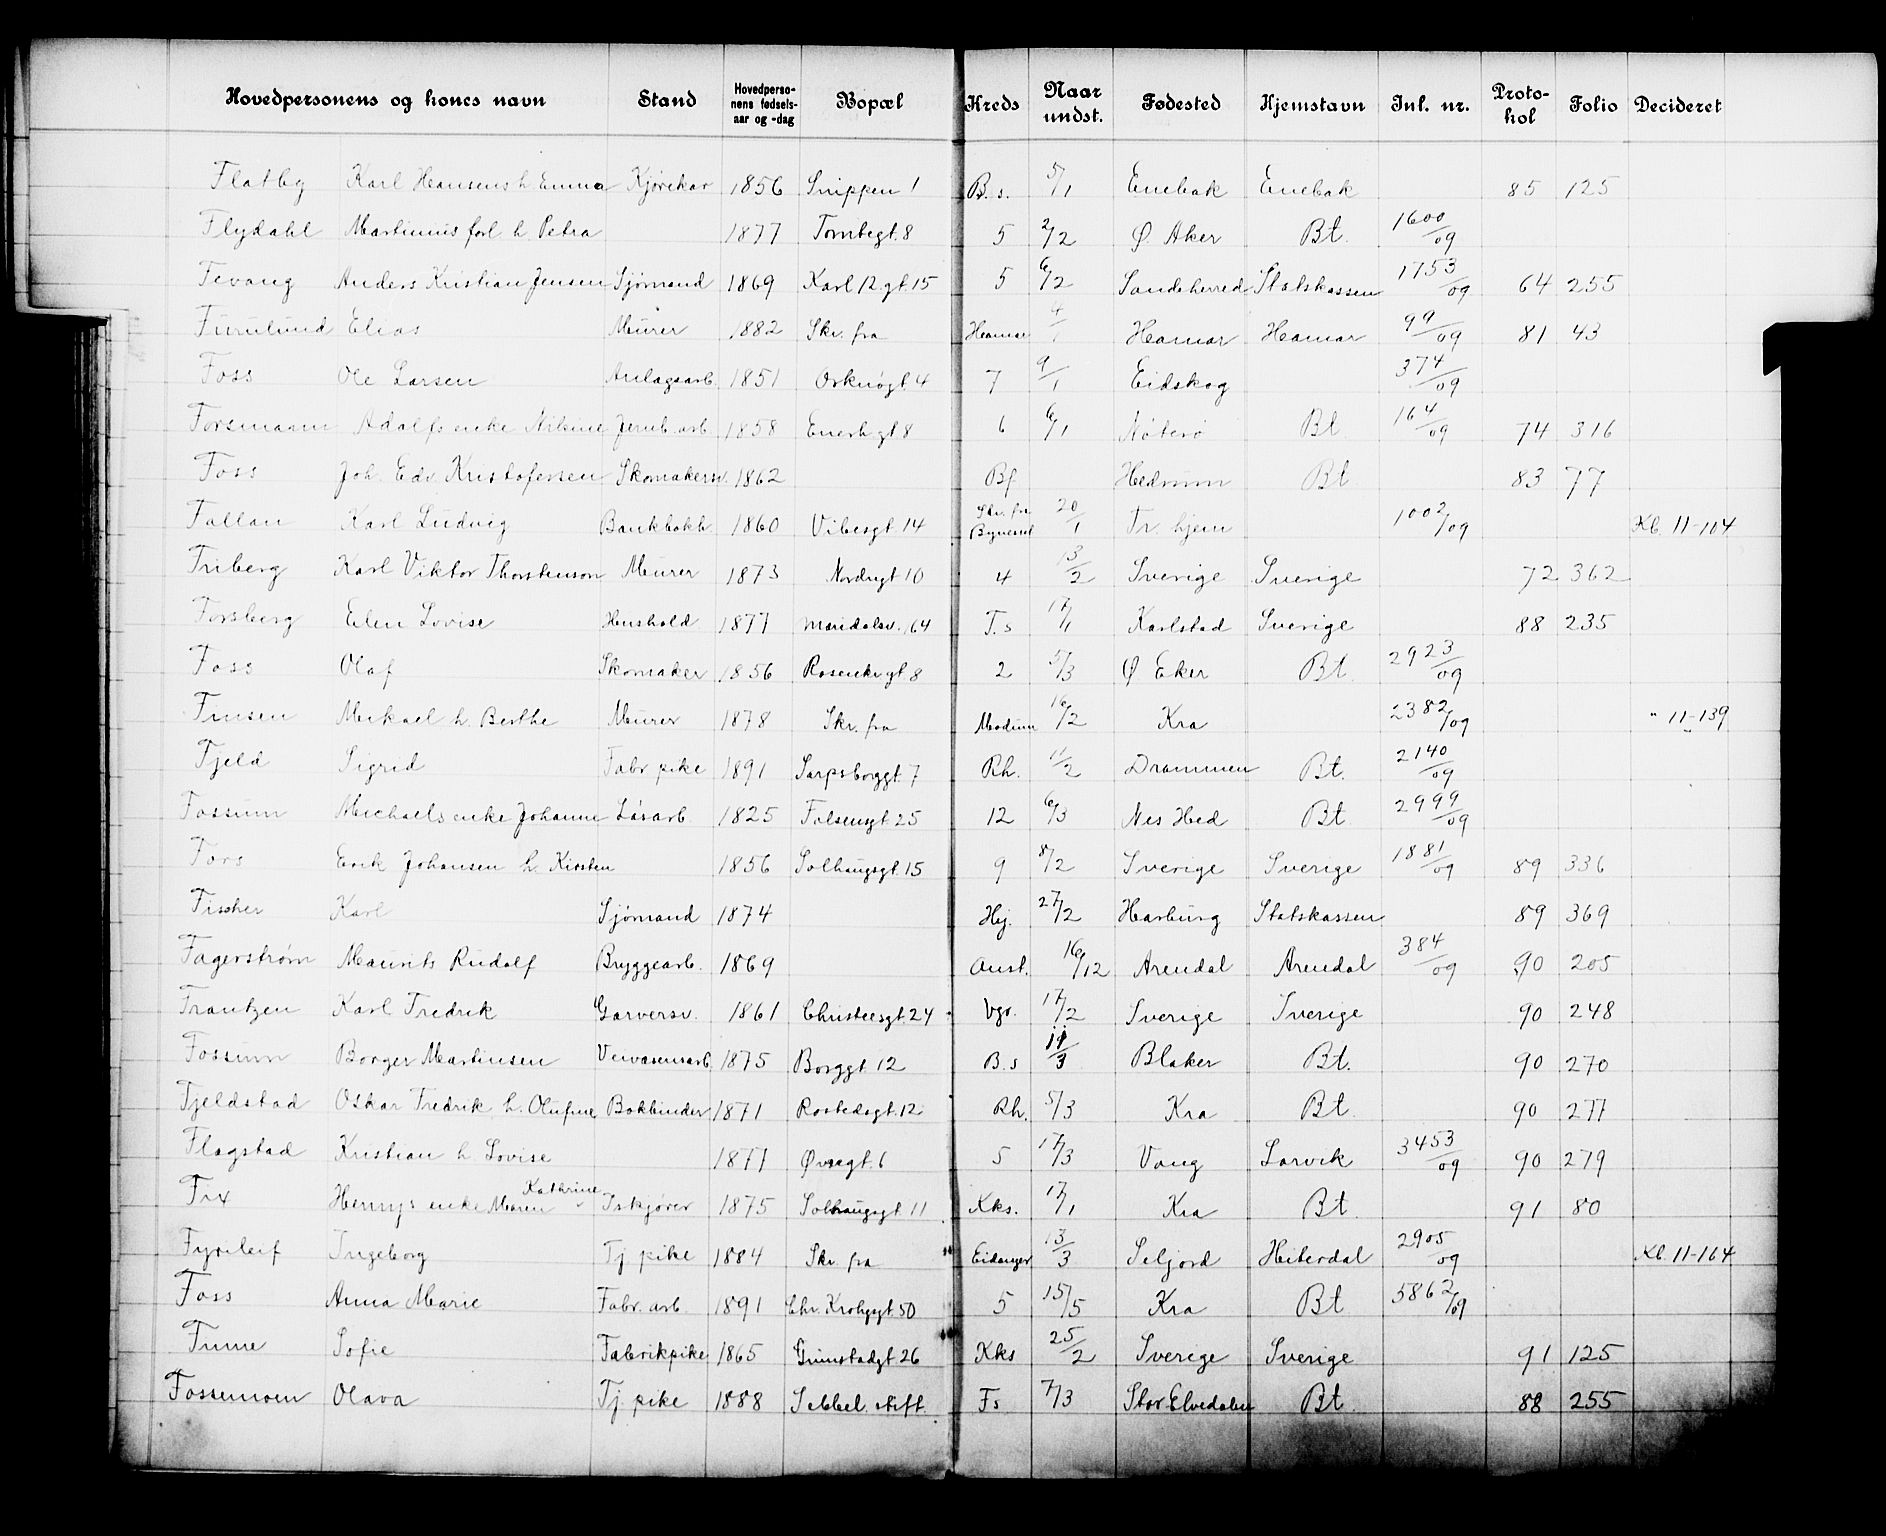 Hovedpersonens og kones navn Stand Hovedperso-nens fødsels-aar og -dag Bopæl Kreds Naar undst. Fødested Hjemstavn Inl. nr. Proto-kol Folio Decideret
Flatby Karl Hansens h. Emma Kjørekar 1856 Snippen 1 B. s. 5/1 Enebak Enebak 85 125
Flydahl Martinius forl. h. Petra 1877 Tomtegt. 8 5 2/2 Ø. Aker Bt. 1600/09
Fevang Anders Kristian Jensen Sjømand 1869 Karl 12 gt. 15 5 6/2 Sandeherred Statskassen 1753/09 64 255
Furulund Elias Murer 1882 Skr. fra Hamar Hamar Hamar 99/09 81 43
Foss Ole Larsen Anlagsarb. 1851 Orknøgt 4 7 9/1 Eidskog 374/09
Forsmann Adolfs enke Nilsine Jernb. arb. 1858 Enerh.gt 8 6 6/1 Nøterø Bt. 164/09 74 316
Foss Joh. Edv. Kristofersen Skomakersv. 1862 Bf Hedrum Bt. 83 77
Fallan Karl Ludvig Bankbokh. 1860 Vibesgt 14 Skr. fra Bynesset 20/1 Tr. hjem 1002/09 Kb. 11-104
Friberg Karl Viktor Thorstenson Murer 1873 Nordregt 10 4 13/2 Sverige Sverige 72 362
Forsberg Elen Lovise Hushold 1877 Maridalsv. 164 T. s 17/1 Karlstad Sverige 88 235
Foss Olaf Skomaker 1856 Rosenkr.gt 8 2 5/3 Ø Eker Bt. 2923/09
Finsen Mikael h. Berthe Murer 1878 Skr. fra Modum 16/2 Kra 2382/09 " 11-139
Fjeld Sigrid Fabr pike 1891 Sarpsborggt. 7 Rh. 11/2 Drammen Bt. 2140/09
Fossum Michaels enke Johanne Løsarb. 1825 Falsensgt. 25 12 6/3 Nes Hed Bt. 2999/09
Fors Erik Johansen h. Kirsten 1856 Solhaugsgt. 15 9 8/2 Sverige Sverige 1881/09 89 336
Fischer Karl Sjømand 1874 Hj. 27/2 Harburg Statskassen 89 369
Fagerstrøm Maurits Rudolf Bryggearb. 1869 Aust. 16/12 Arendal Arendal 384/09 90 205
Frantzen Karl Fredrik Garversv. 1861 Christiesgt. 24 Vgr. 17/2 Sverige Sverige 90 248
Fossum Borger Martinsen Veivæsensarb. 1875 Borggt. 12 B. s 11/3 Blaker Bt. 90 270
Fjeldstad Oskar Fredrik h. Olufine Bokbinder 1871 Rostedsgt. 12 Rh. 5/3 Kra Bt. 90 277
Flagstad Kristian h. Lovise 1877 Øvregt. 6 5 17/3 Vang Larvik 3453/09 90 279
Fix Henrys enke Maren Kathrine Iskjører 1875 Solhaugsgt. 11 Kks. 17/1 Kra Bt. 91 80
Fyrileif Ingeborg Tj pike 1884 Skr. fra Eidanger 13/3 Seljord Hiterdal 2905/09 Kb. 11-164
Foss Anna Marie Fabr. arb. 1891 Chr. Krohgsgt 50 5 15/5 Kra Bt. 5862/09
Fume Sofie Fabrikpike 1865 Grimstadgt. 26 Kks 25/2 Sverige Sverige 91 125
Fossemoen Olava Tj. pike 1888 Sebbel. stift. Fs 7/3 Stor Elvedalen Bt. 88 255